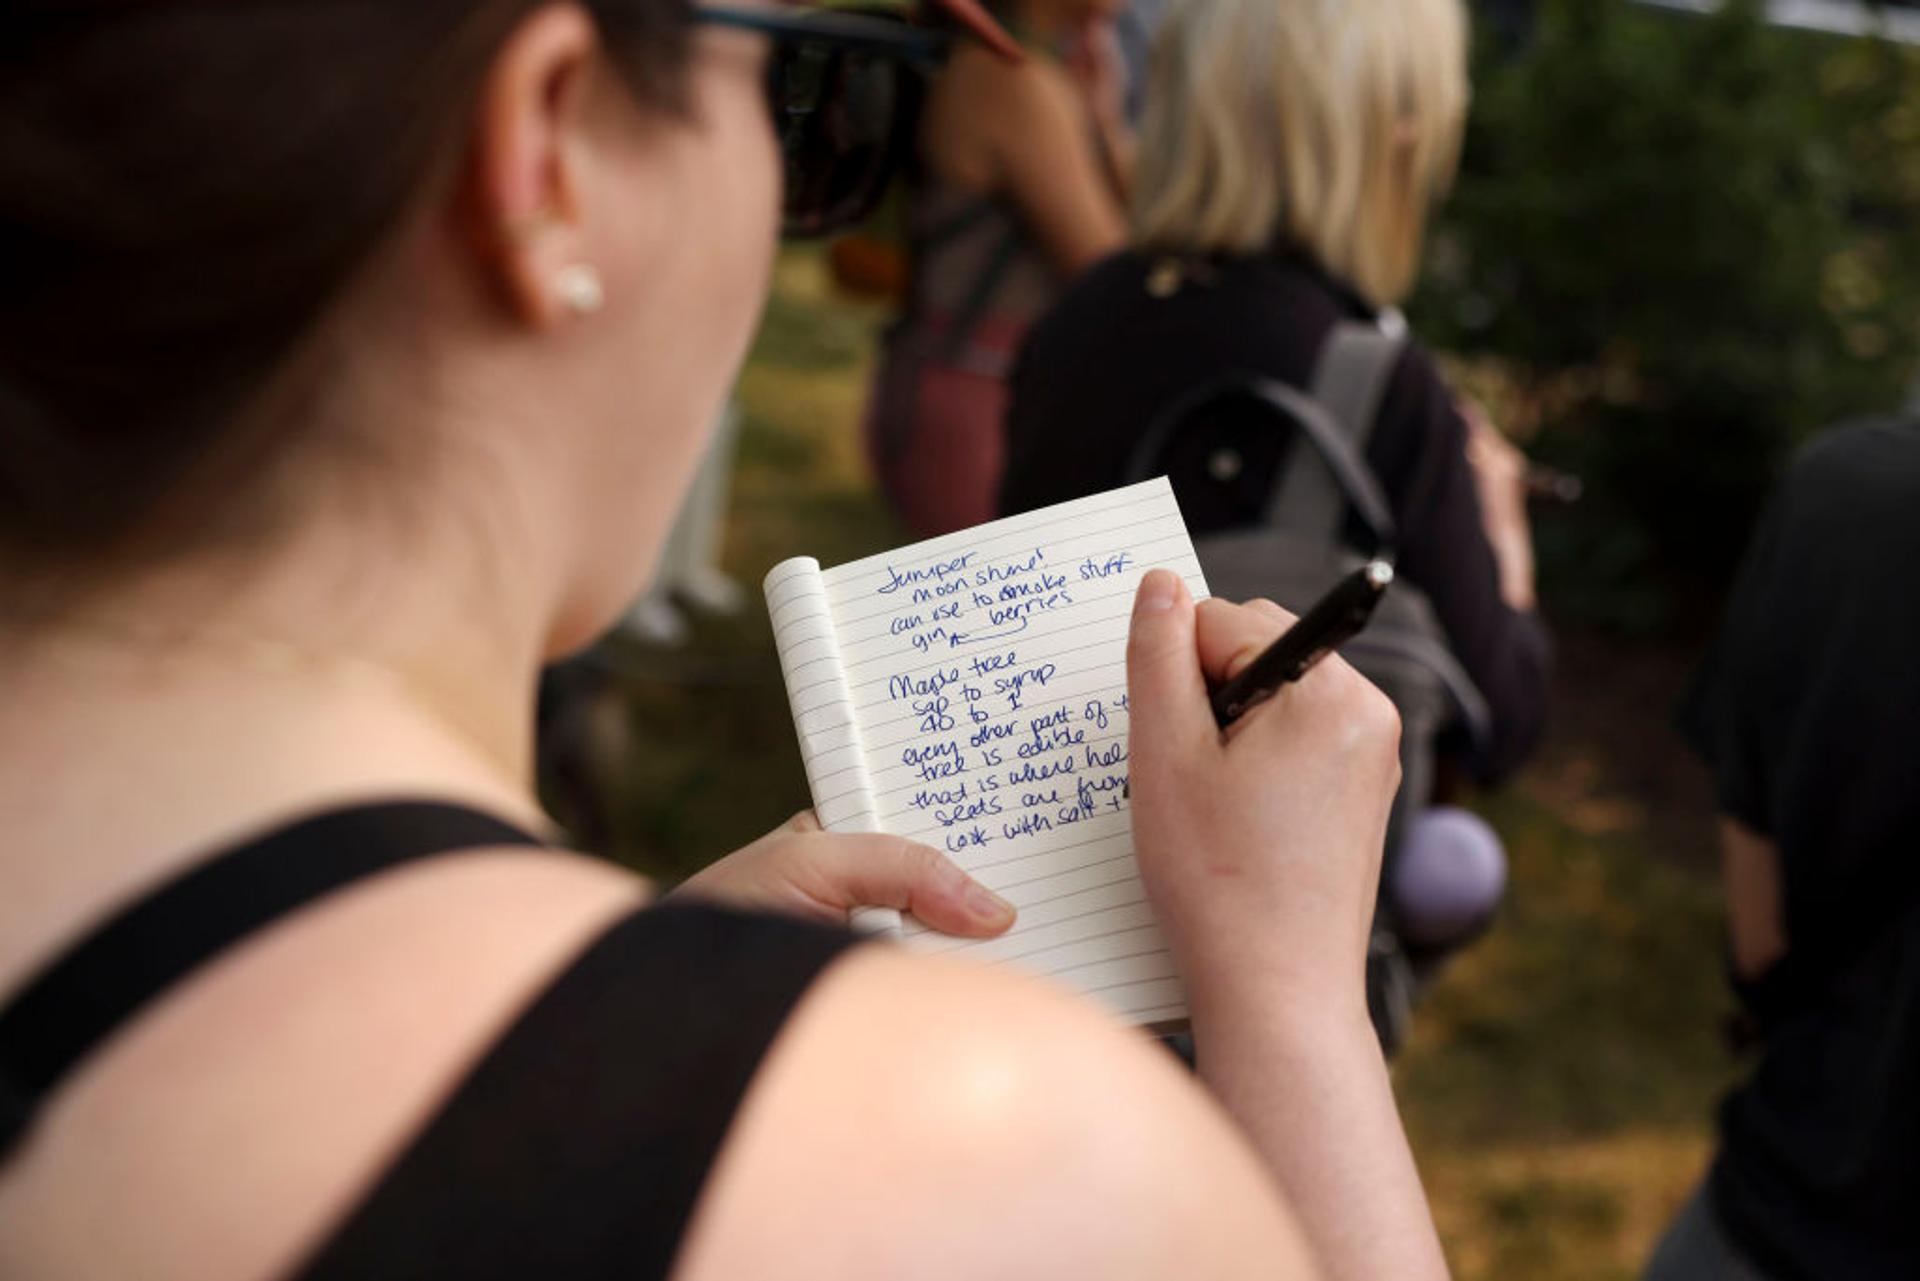 Juniper
moon shine!
can use to smoke stuff
gin berries
Maple tree
sap to syrup
40 to 1
every other part of
tree is edible
that is where hel
seeds are from
cook with salt +